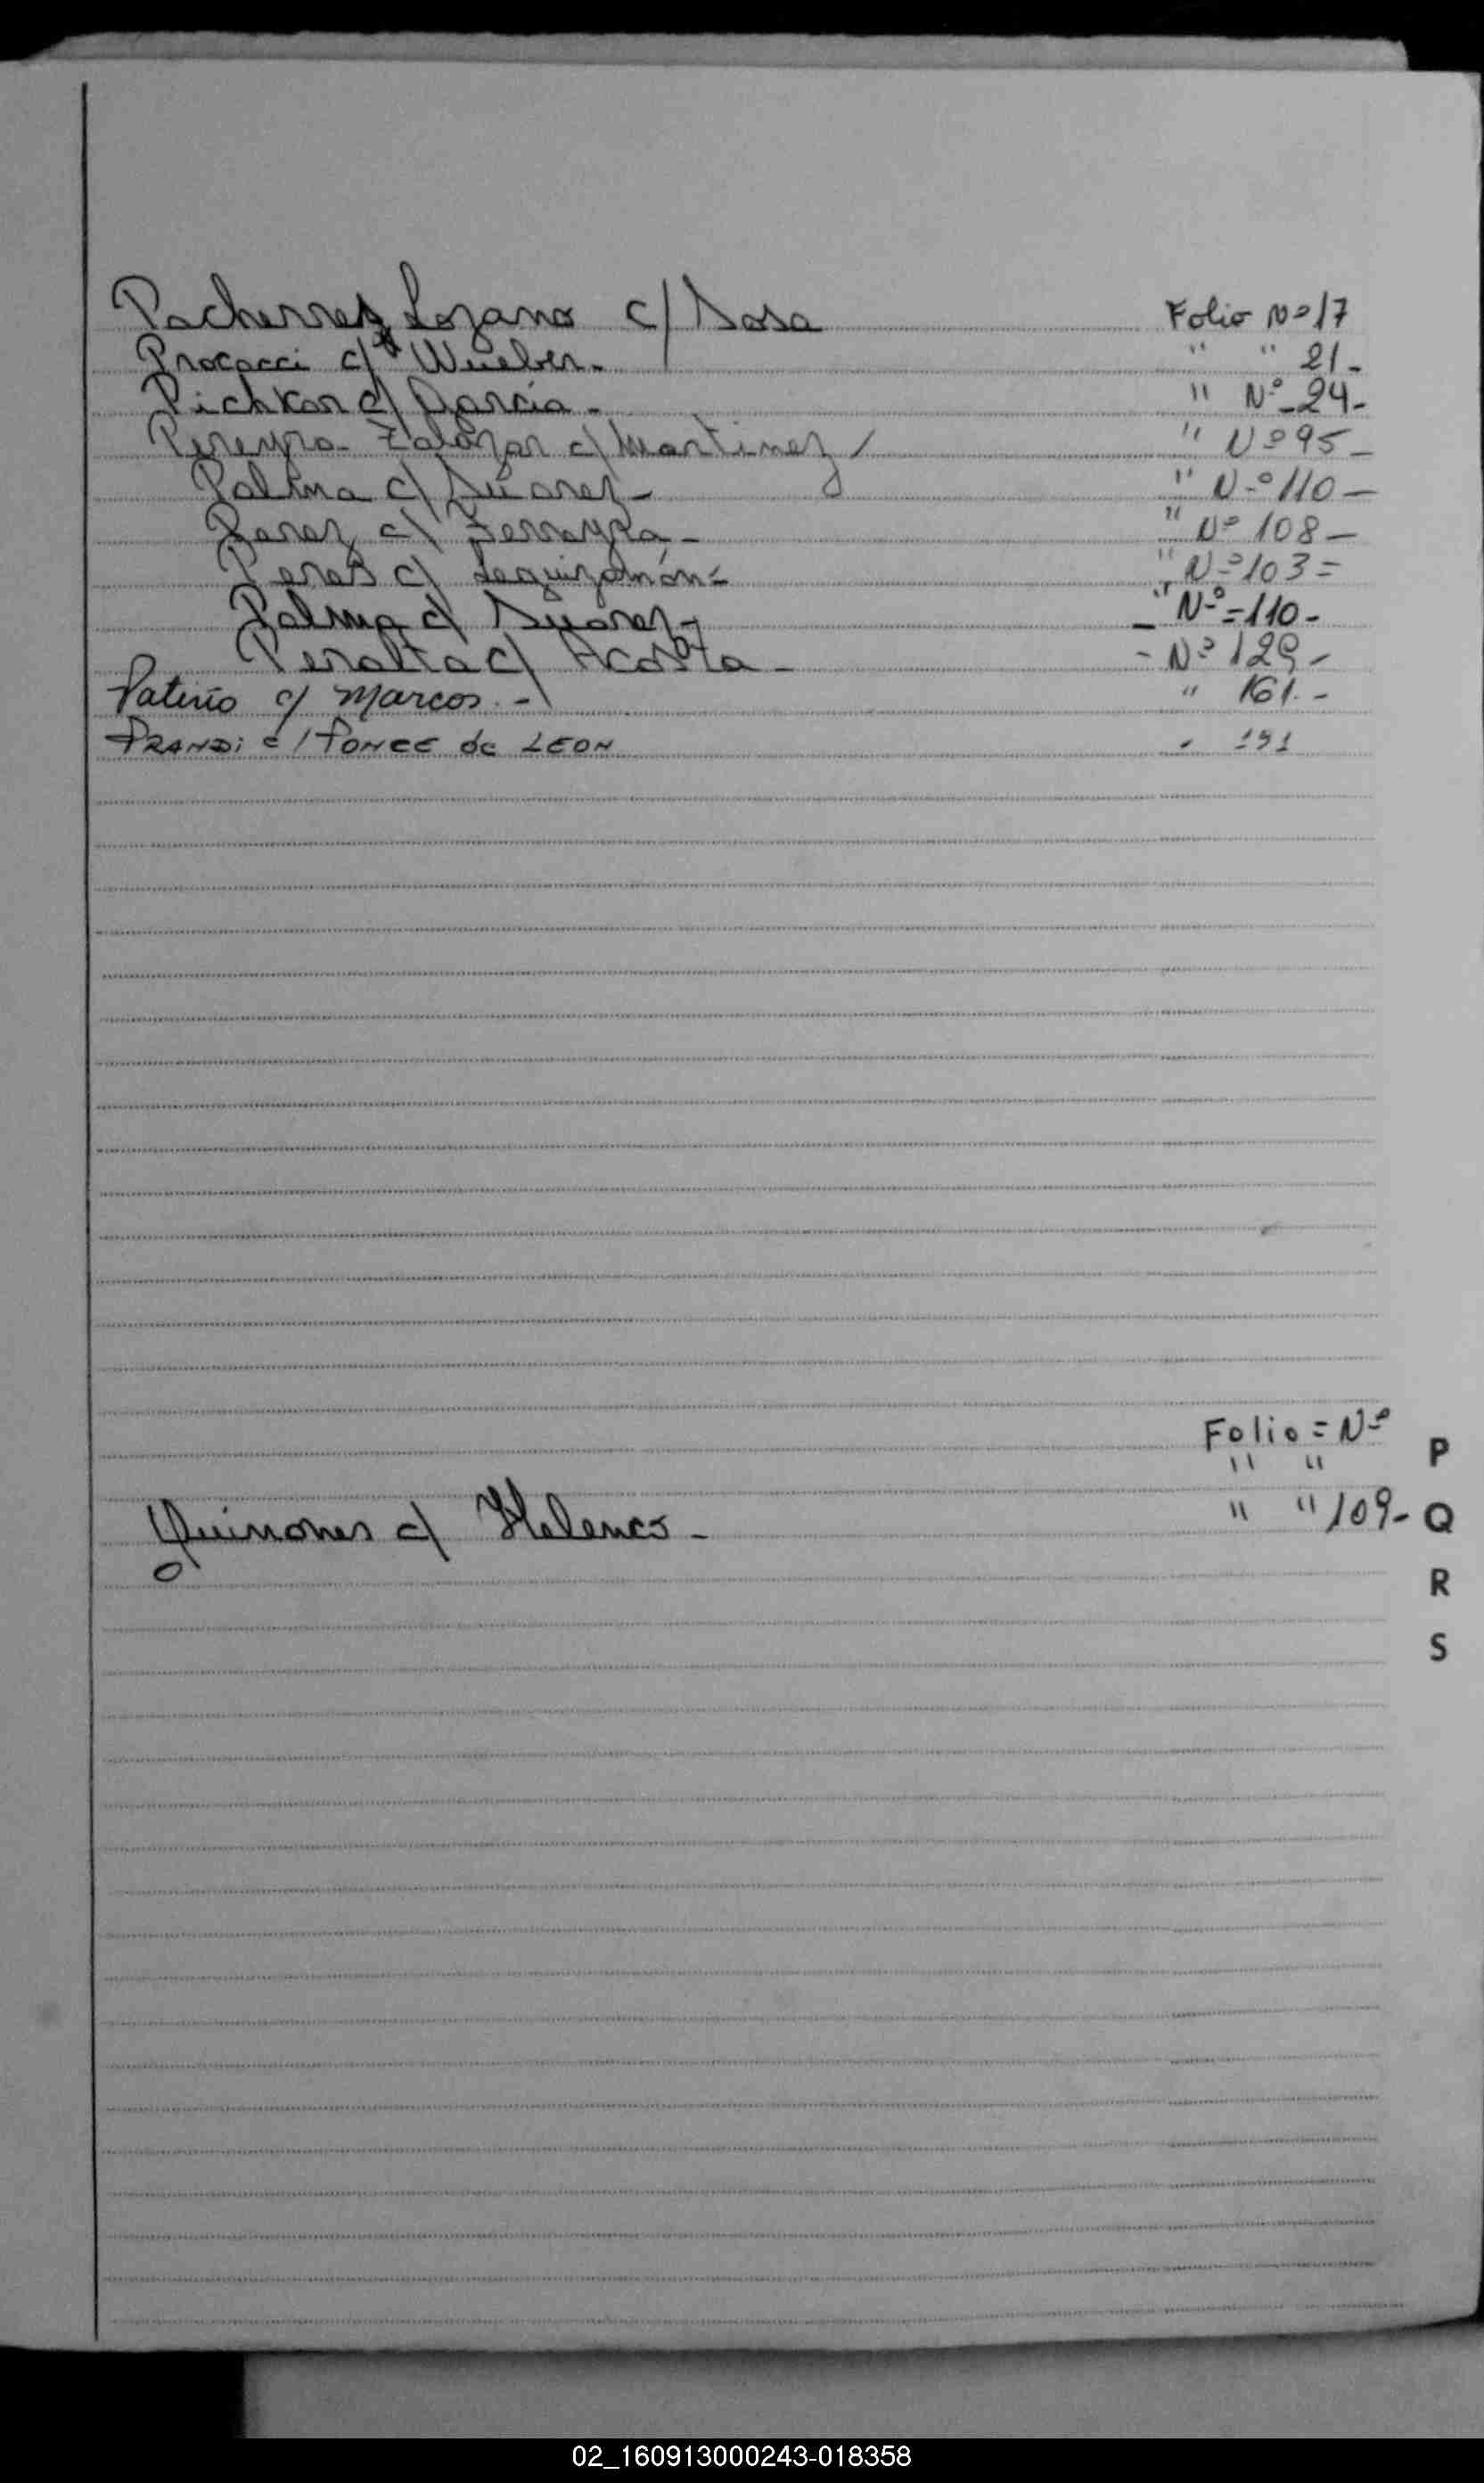 Pacherrez Lozano c/ Sosa Folio Nº 17
Procacci c/ Wueber. " " 21-
Pichkon c/ Garcia - " Nº 24-
Pereyra Zalazar c/ Martinez " Nº 95-
Palma c/ Súarez - " Nº 110-
Perez c/ Ferreyra - " Nº 108-
Peres c/ Leguizamón = " Nº 103=
Palma c/ Suarez - " Nº = 110-
Peralta c/ Acosta - - Nº 129-
Patiño c/ Marcos. - " 161.-
PRANDi c/ PONCE de LEON 191
Folio = Nº
" " P
Quinones c/ " " 109- Q
R
S
02_160913000243-018358